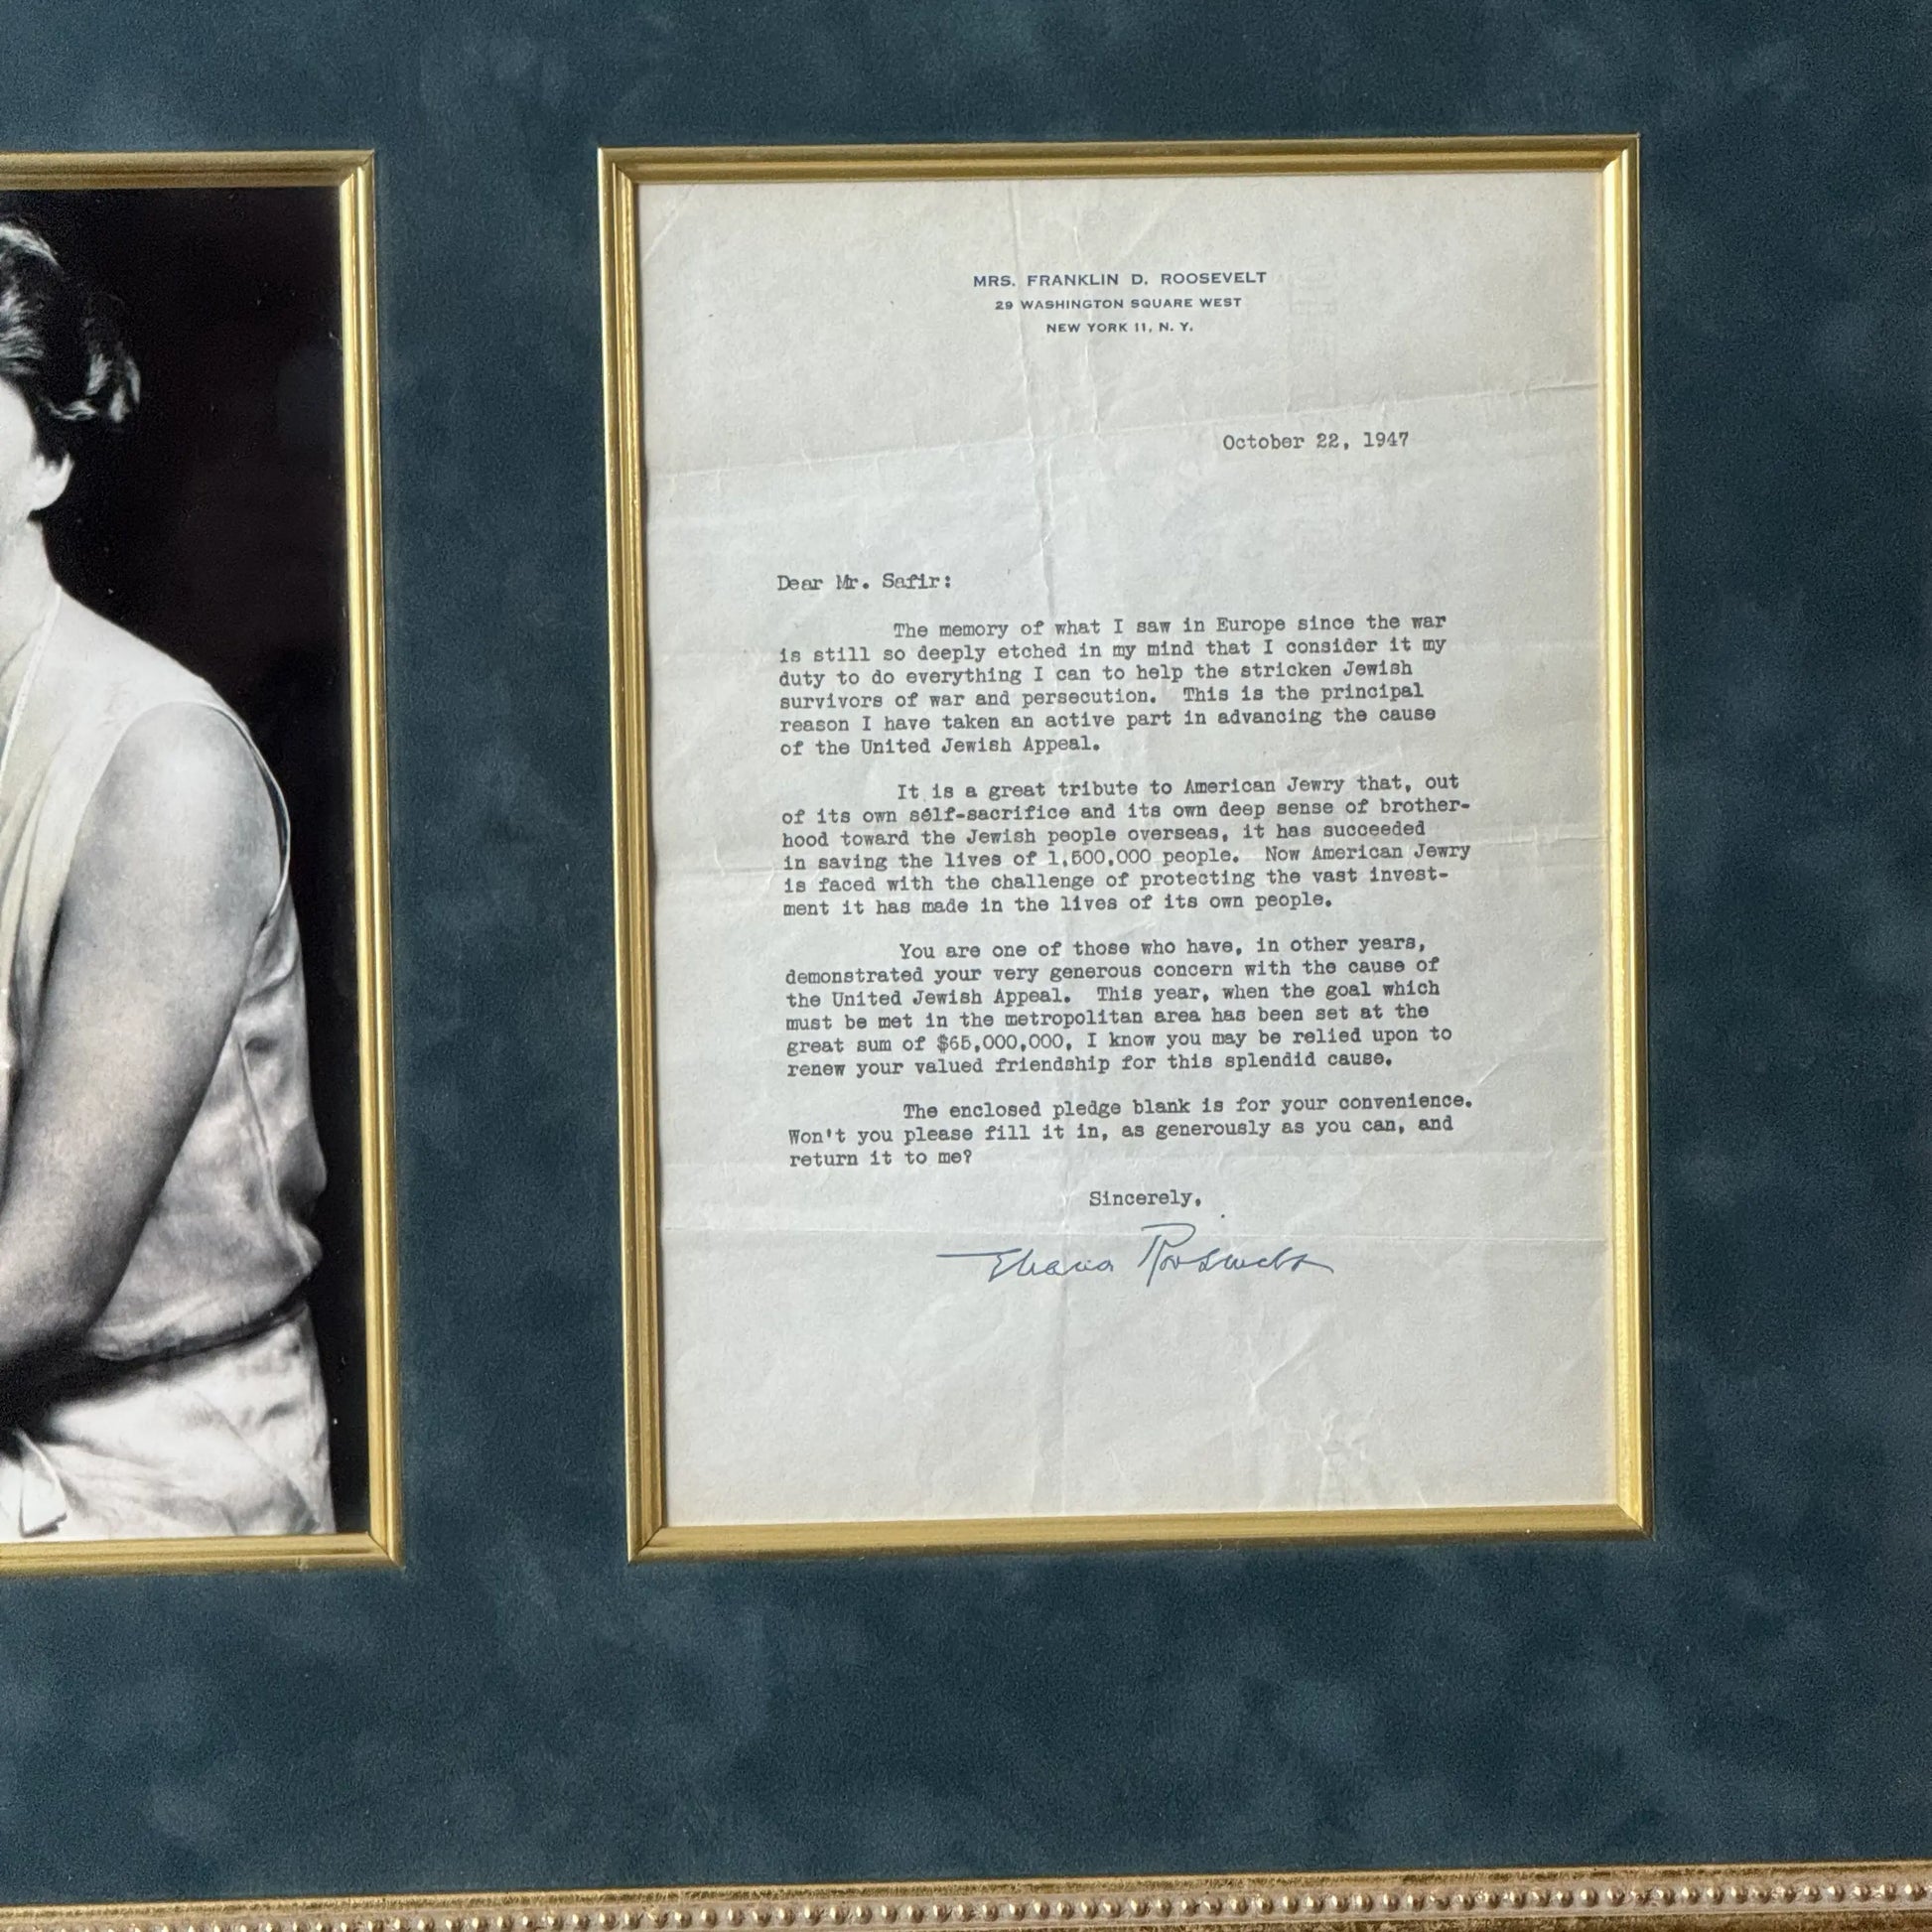 MRS. FRANKLIN D. ROOSEVELT
29 WASHINGTON SQUARE WEST
NEW YORK 11, N. Y.
October 22, 1947
Dear Mr. Safir:
The memory of what I saw in Europe since the war
is still so deeply etched in my mind that I consider it my
duty to do everything I can to help the stricken Jewish
survivors of war and persecution. This is the principal
reason I have taken an active part in advancing the cause
of the United Jewish Appeal.
It is a great tribute to American Jewry that, out
of its own self-sacrifice and its own deep sense of brother-
hood toward the Jewish people overseas, it has succeeded
in saving the lives of 1,500,000 people. Now American Jewry
is faced with the challenge of protecting the vast invest-
ment it has made in the lives of its own people.
You are one of those who have, in other years,
demonstrated your very generous concern with the cause of
the United Jewish Appeal. This year, when the goal which
must be met in the metropolitan area has been set at the
great sum of $65,000,000, I know you may be relied upon to
renew your valued friendship for this splendid cause.
The enclosed pledge blank is for your convenience.
Won't you please fill it in, as generously as you can, and
return it to me?
Sincerely,
Eleanor Roosevelt